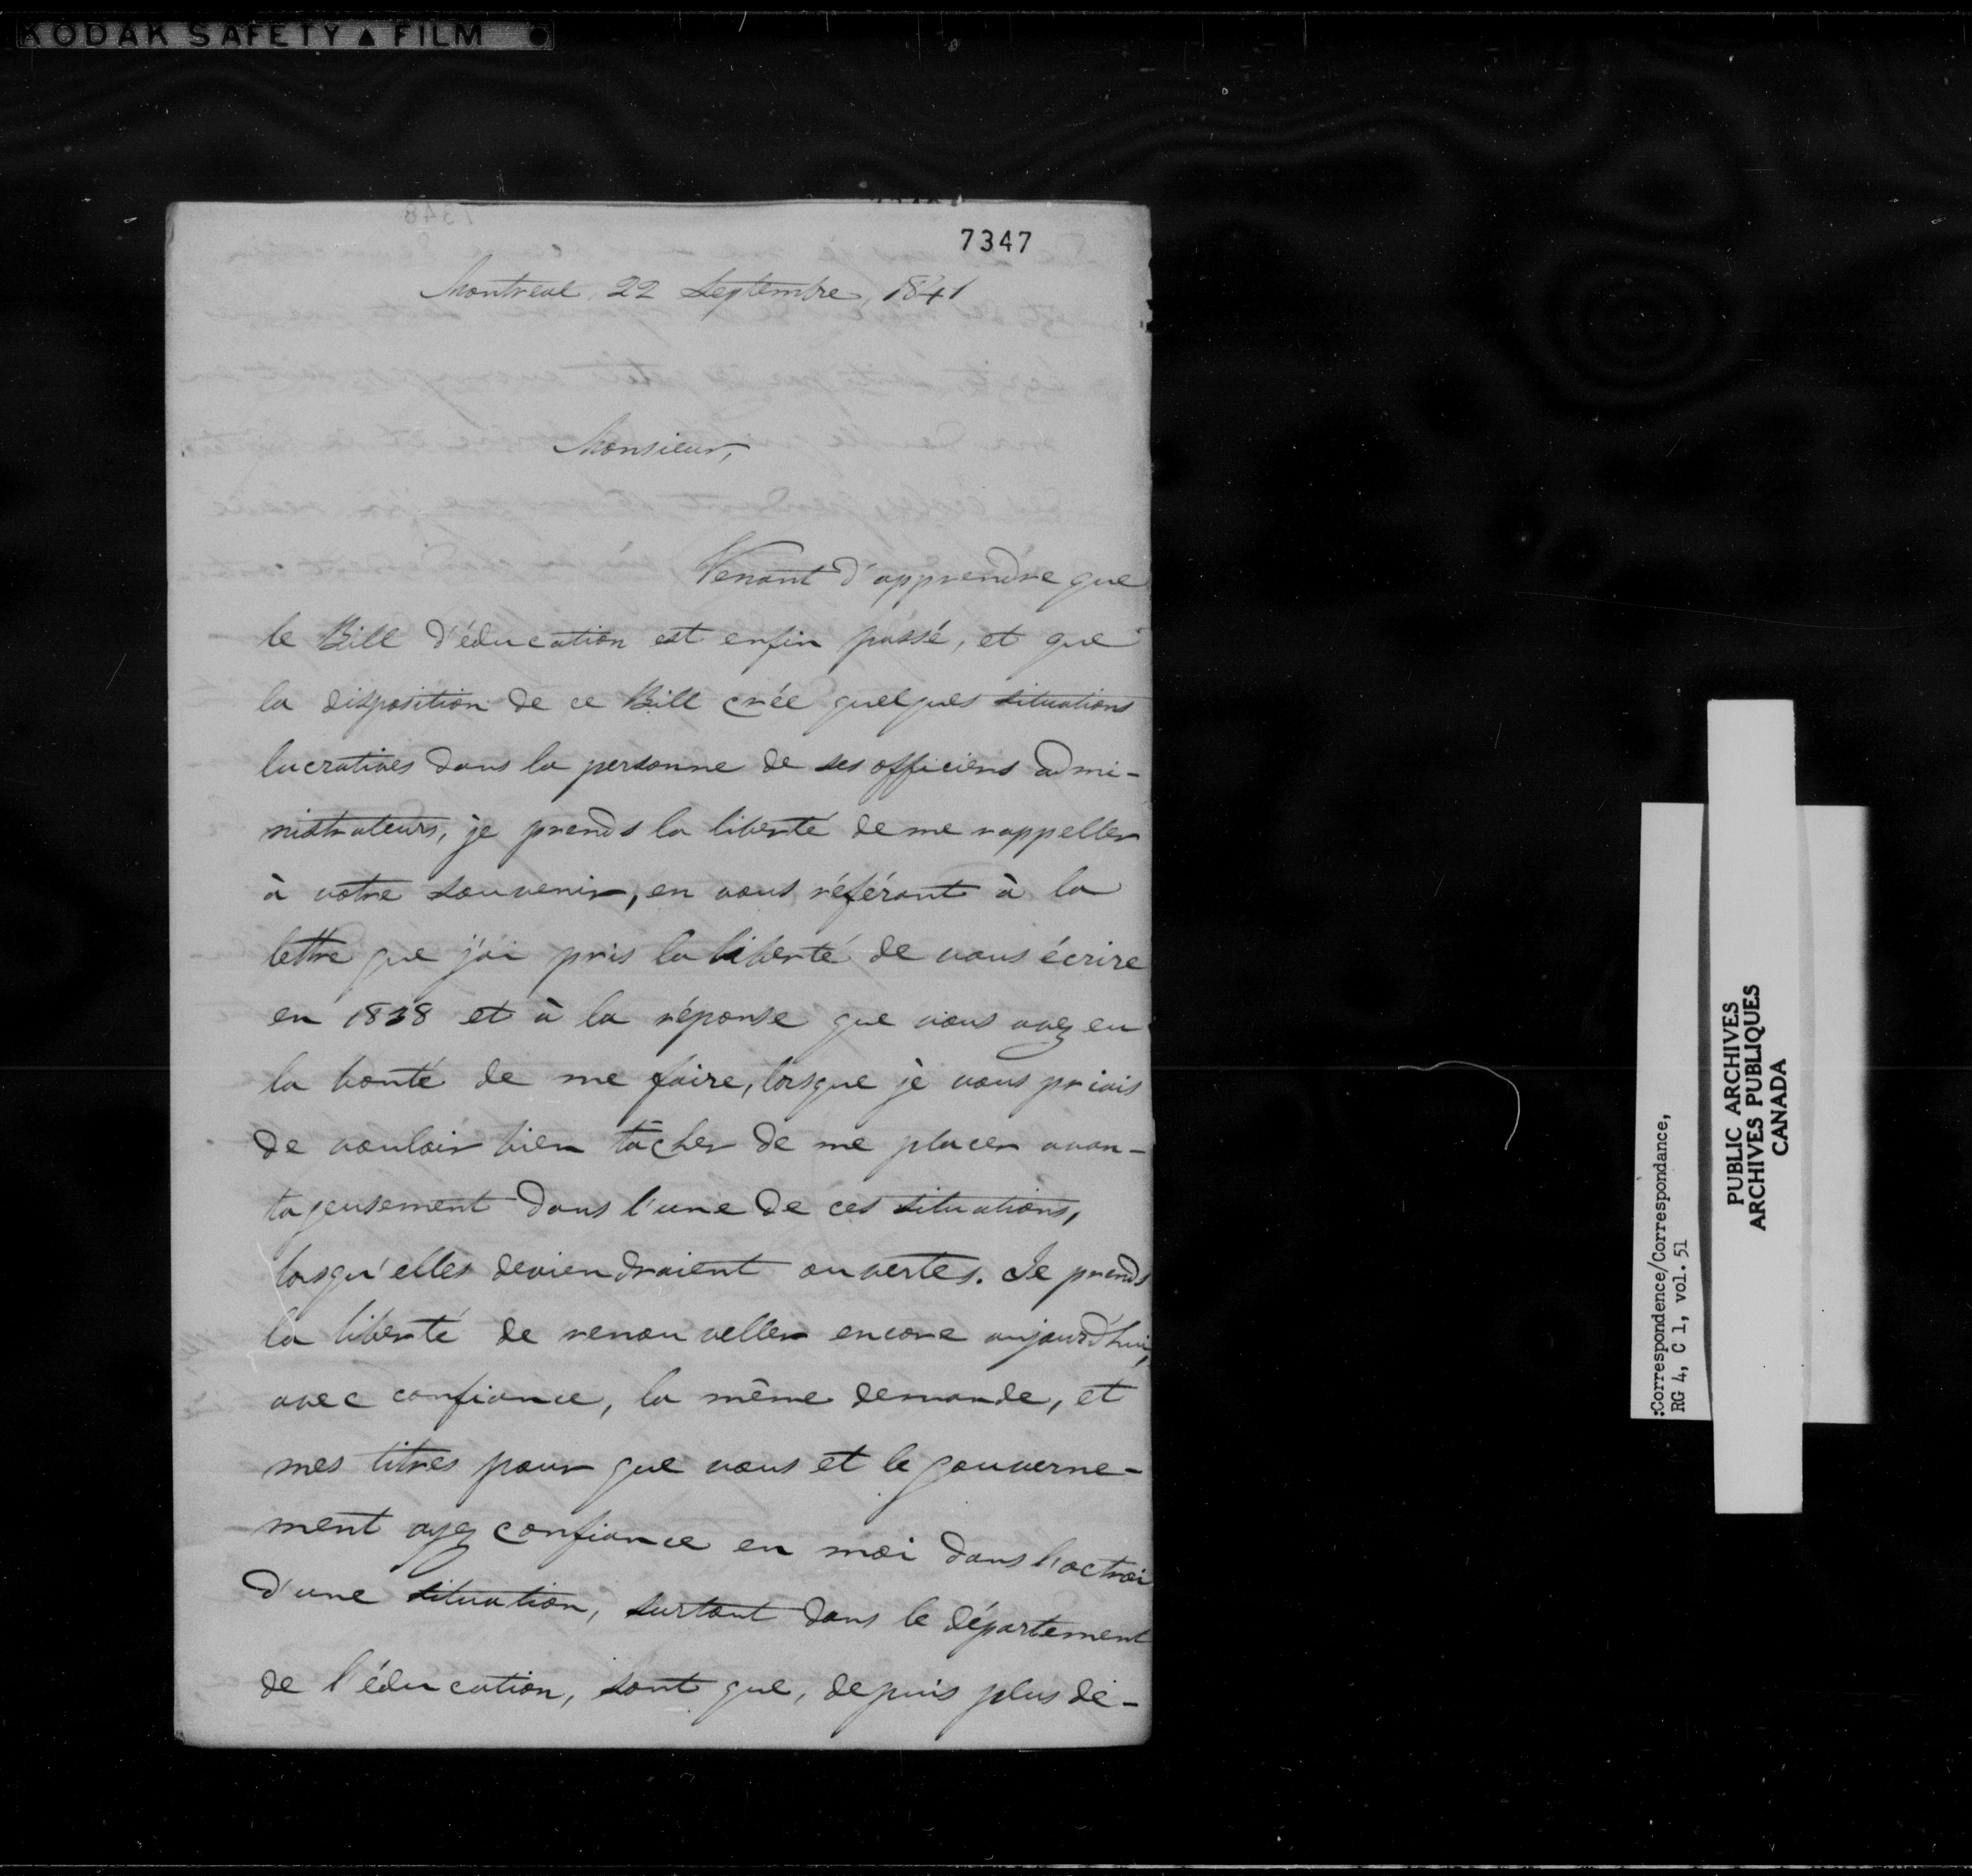 KODAK SAFETY ▲ FILM
7347
Montreal, 22 Septembre, 1841
Monsieur,
Venant d'apprendre que
le Bill d'éducation est enfin passé, et que
la disposition de ce Bill crée quelques situations
lucratives dans la personne de ses officiers admi-
nistrateurs, je prends la liberté de me rappeller
à votre souvenir, en vous référant à la
lettre que j'ai pris la liberté de vous écrire
en 1838 et à la réponse que vous avez eu
la bonté de me faire, lorsque je vous priais
de vouloir bien tâcher de me placer avan-
tageusement dans l'une de ces situations,
lorsqu'elles deviendraient ouvertes. Je prends
la liberté de renouveller encore aujourd'hui,
avec confiance, la même demande, et
mes titres pour que vous et le gouverne-
ment ayez confiance en moi dans l'octroi
d'une situation, surtout dans le département
de l'éducation, sont que, depuis plus de-
:Correspondence/Correspondance,
RG 4, C 1, vol. 51
PUBLIC ARCHIVES
ARCHIVES PUBLIQUES
CANADA